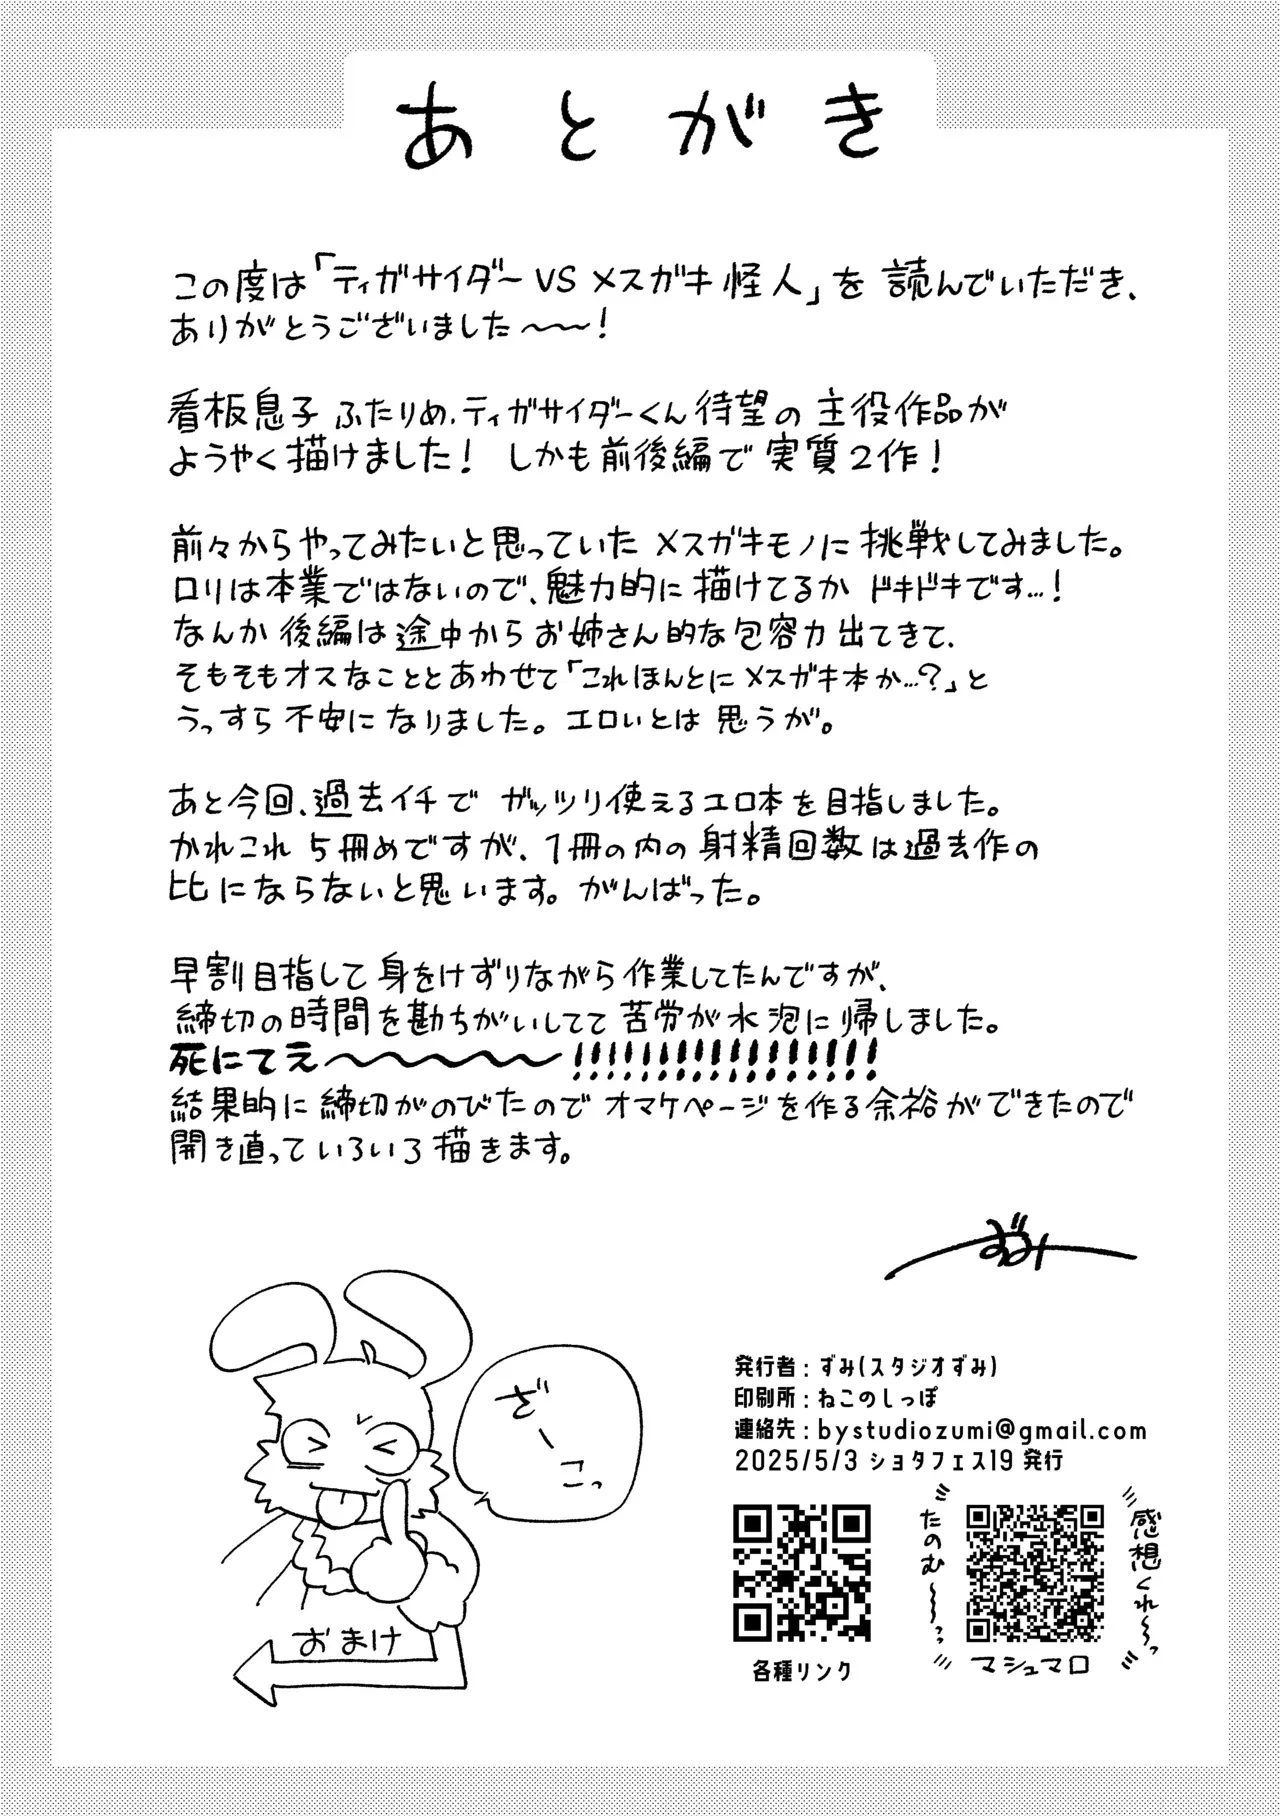 あとがき
この度は「ティガサイダーVSメスガキ怪人」を読んでいただき、
ありがとうございました〜〜!
看板息子ふたりめ、ティガサイダーくん待望の主役作品が
ようやく描けました! しかも前後編で実質2作!
前々からやってみたいと思っていたメスガキモノに挑戦してみました。
ロリは本業ではないので、魅力的に描けてるかドキドキです…!
なんか後編は途中からお姉さん的な包容力出てきて、
そもそもオスなこととあわせて「これほんとにメスガキ本か…?」と
うっすら不安になりました。エロいとは思うが。
あと今回、過去イチでガッツリ使えるエロ本を目指しました。
かれこれ5冊めですが、1冊の内の射精回数は過去作の
比にならないと思います。がんばった。
早割目指して身をけずりながら作業してたんですが、
締切の時間を勘ちがいしてて苦労が水泡に帰しました。
死にてえ〜〜〜〜〜〜!!!!!!!!!!!!!!!!!!
結果的に締切がのびたのでオマケページを作る余裕ができたので
開き直っていろいろ描きます。
ずみ
ざーこっ
おまけ
発行者:ずみ(スタジオずみ)
印刷所:ねこのしっぽ
連絡先:bystudiozumi@gmail.com
2025/5/3 ショタフェス19 発行
各種リンク
感想くれ〜っ
たのむ〜〜っ
マシュマロ